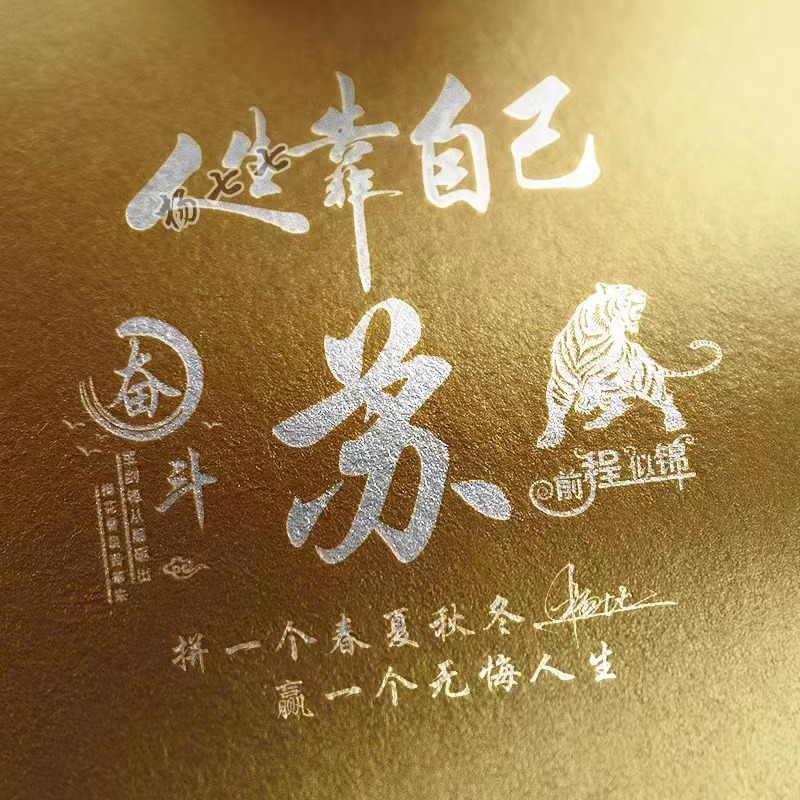 人生靠自己
杨七七
奋
斗
苏
前程似锦
拼一个春夏秋冬
赢一个无悔人生